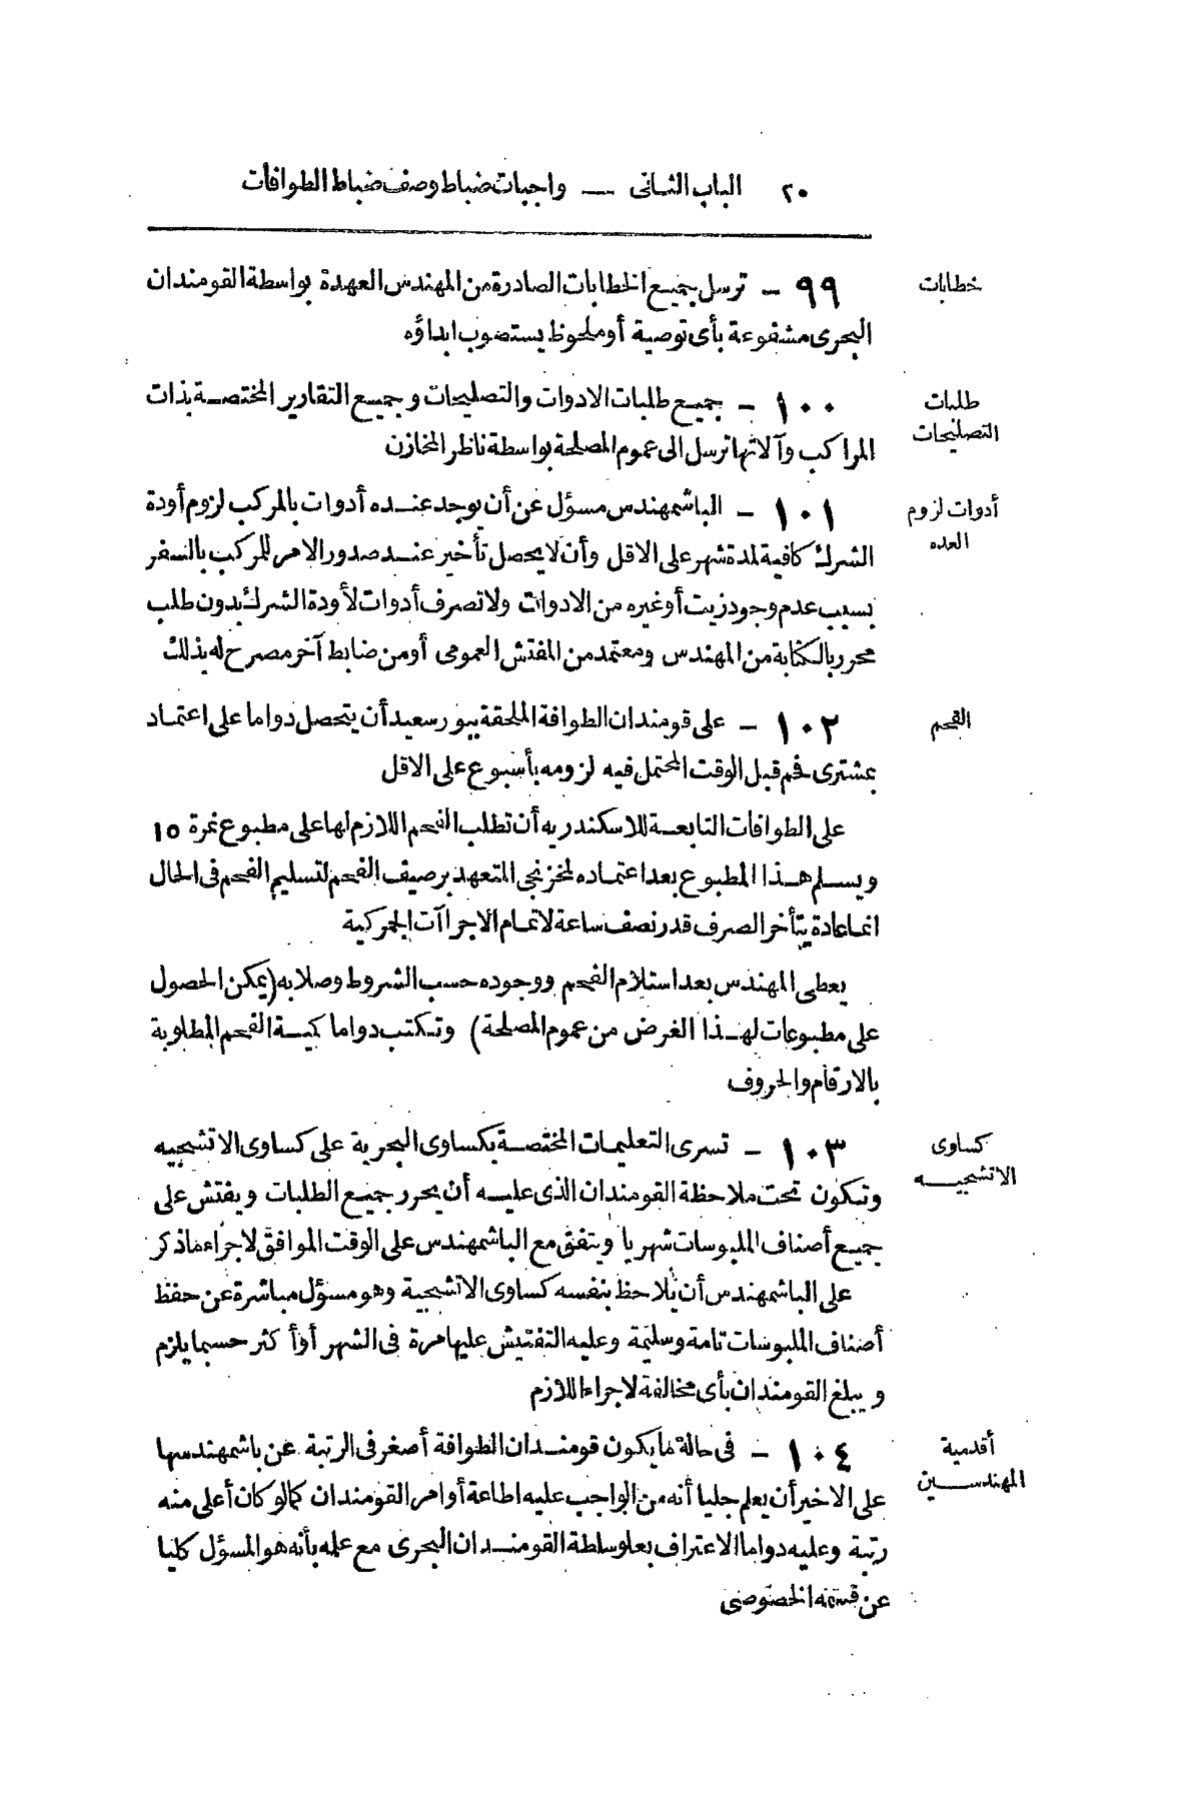 ٢٠ الباب الثانى — واجبات ضباط وصف ضباط الطوافات
خطابات
٩٩ - ترسل جميع الخطابات الصادرة من المهندس العهدة بواسطة القومندان
البحرى مشفوعة بأى توصية أو ملحوظ يستصوب ابداؤه
طلبات
التصليحات
١٠٠ - جميع طلبات الادوات والتصليحات وجميع التقارير المختصة بذات
المراكب وآلاتها ترسل الى عموم المصلحة بواسطة ناظر المخازن
أدوات لزوم
العده
١٠١ - الباشمهندس مسؤل عن أن يوجد عنده أدوات بالمركب لزوم أودة
الشرك كافية لمدة شهر على الاقل وأن لا يحصل تأخير عند صدور الامر للمركب بالسفر
بسبب عدم وجود زيت أو غيره من الادوات ولا تصرف أدوات لأودة الشرك بدون طلب
محرر بالكتابة من المهندس ومعتمد من المفتش العمومى أو من ضابط آخر مصرح له بذلك
الفحم
١٠٢ - على قومندان الطوافة الملحقة ببور سعيد أن يتحصل دواما على اعتماد
بمشترى فحم قبل الوقت المحتمل فيه لزومه بأسبوع على الاقل
على الطوافات التابعة للاسكندريه أن تطلب الفحم اللازم لها على مطبوع نمرة ١٥
ويسلم هذا المطبوع بعد اعتماده لمخزنجى المتعهد برصيف الفحم لتسليم الفحم فى الحال
انما عادة يتأخر الصرف قدر نصف ساعة لاتمام الاجراآت الجمركية
يعطى المهندس بعد استلام الفحم ووجوده حسب الشروط وصلا به (يمكن الحصول
على مطبوعات لهذا الغرض من عموم المصلحة) وتكتب دواما كمية الفحم المطلوبة
بالارقام والحروف
كساوى
الاتشجيه
١٠٣ - تسرى التعليمات المختصة بكساوى البحرية على كساوى الاتشجيه
وتكون تحت ملاحظة القومندان الذى عليه أن يحرر جميع الطلبات ويفتش على
جميع أصناف الملبوسات شهريا ويتفق مع الباشمهندس على الوقت الموافق لاجراء ماذكر
على الباشمهندس أن يلاحظ بنفسه كساوى الاتشجية وهو مسؤل مباشرة عن حفظ
أصناف الملبوسات تامة وسليمة وعليه التفتيش عليها مرة فى الشهر أو أكثر حسبما يلزم
ويبلغ القومندان بأى مخالفة لاجراء اللازم
أقدمية
المهندسين
١٠٤ - فى حالة ما يكون قومندان الطوافة أصغر فى الرتبة عن باشمهندسها
على الاخير أن يعلم جليا أنه من الواجب عليه اطاعة أوامر القومندان كما لو كان أعلى منه
رتبة وعليه دواما الاعتراف بعلو سلطة القومندان البحرى مع علمه بأنه هو المسؤل كليا
عن قسمه الخصوصى